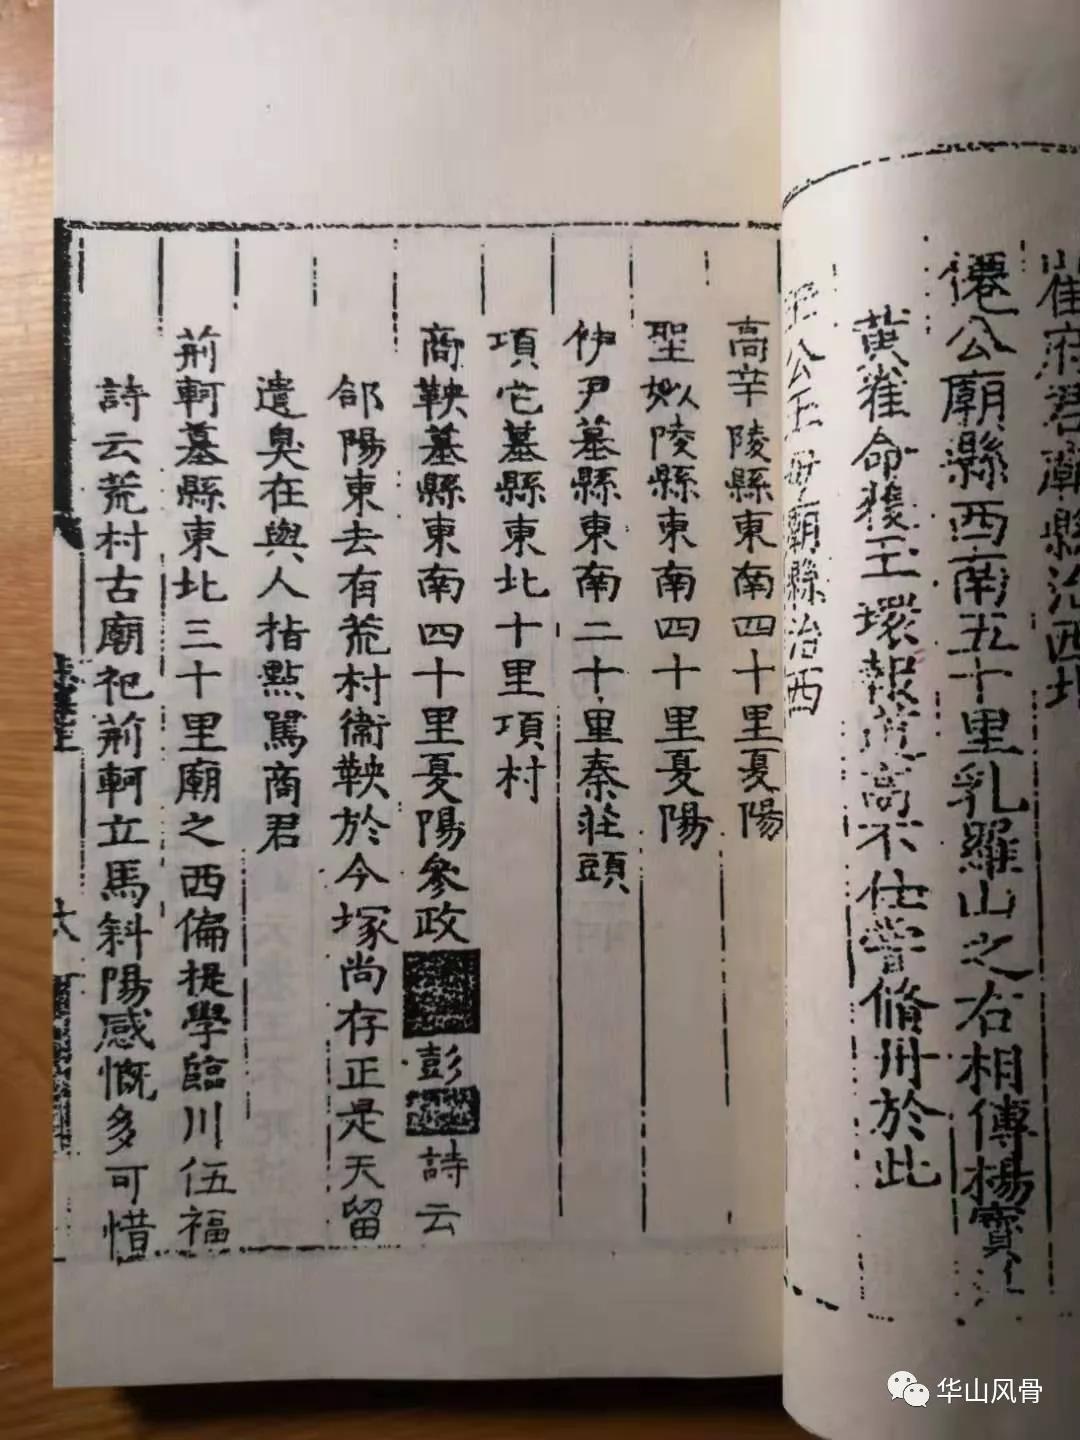 崔府君廟縣治西北
僊公廟縣西南五十里乳羅山之右相傳楊寶
黄雀命獲玉環報
不仕嘗脩卅於此
王公王母廟縣治西
高辛陵縣東南四十里夏陽
聖姒陵縣東南四十里夏陽
伊尹墓縣東南二十里秦莊頭
項它墓縣東北十里項村
商鞅墓縣東南四十里夏陽參政
彭
詩云
郃陽東去有荒村衞鞅於今塚尚存正是天留
遺臭在與人指點罵商君
荊軻墓縣東北三十里廟之西偏提學臨川伍福
詩云荒村古廟祀荊軻立馬斜陽感慨多可惜
六
华山风骨